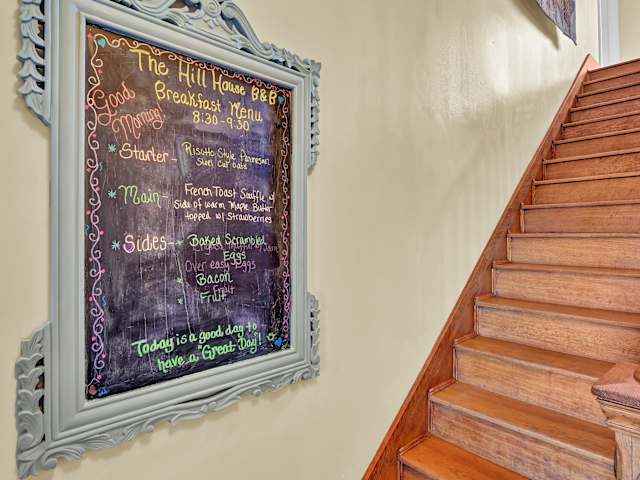 The Hill House B&B
Breakfast Menu
8:30-9:30
Good
Morning!
* Starter - Risotto Style Parmesan
Steel Cut Oats
* Main - French Toast Souffle w/
side of warm Maple Butter
topped w/ Strawberries
* Sides - * Baked Scrambled
Eggs
Over easy Eggs
* Bacon
Fruit
* Fruit
Today is a good day to
have a "Great Day"!